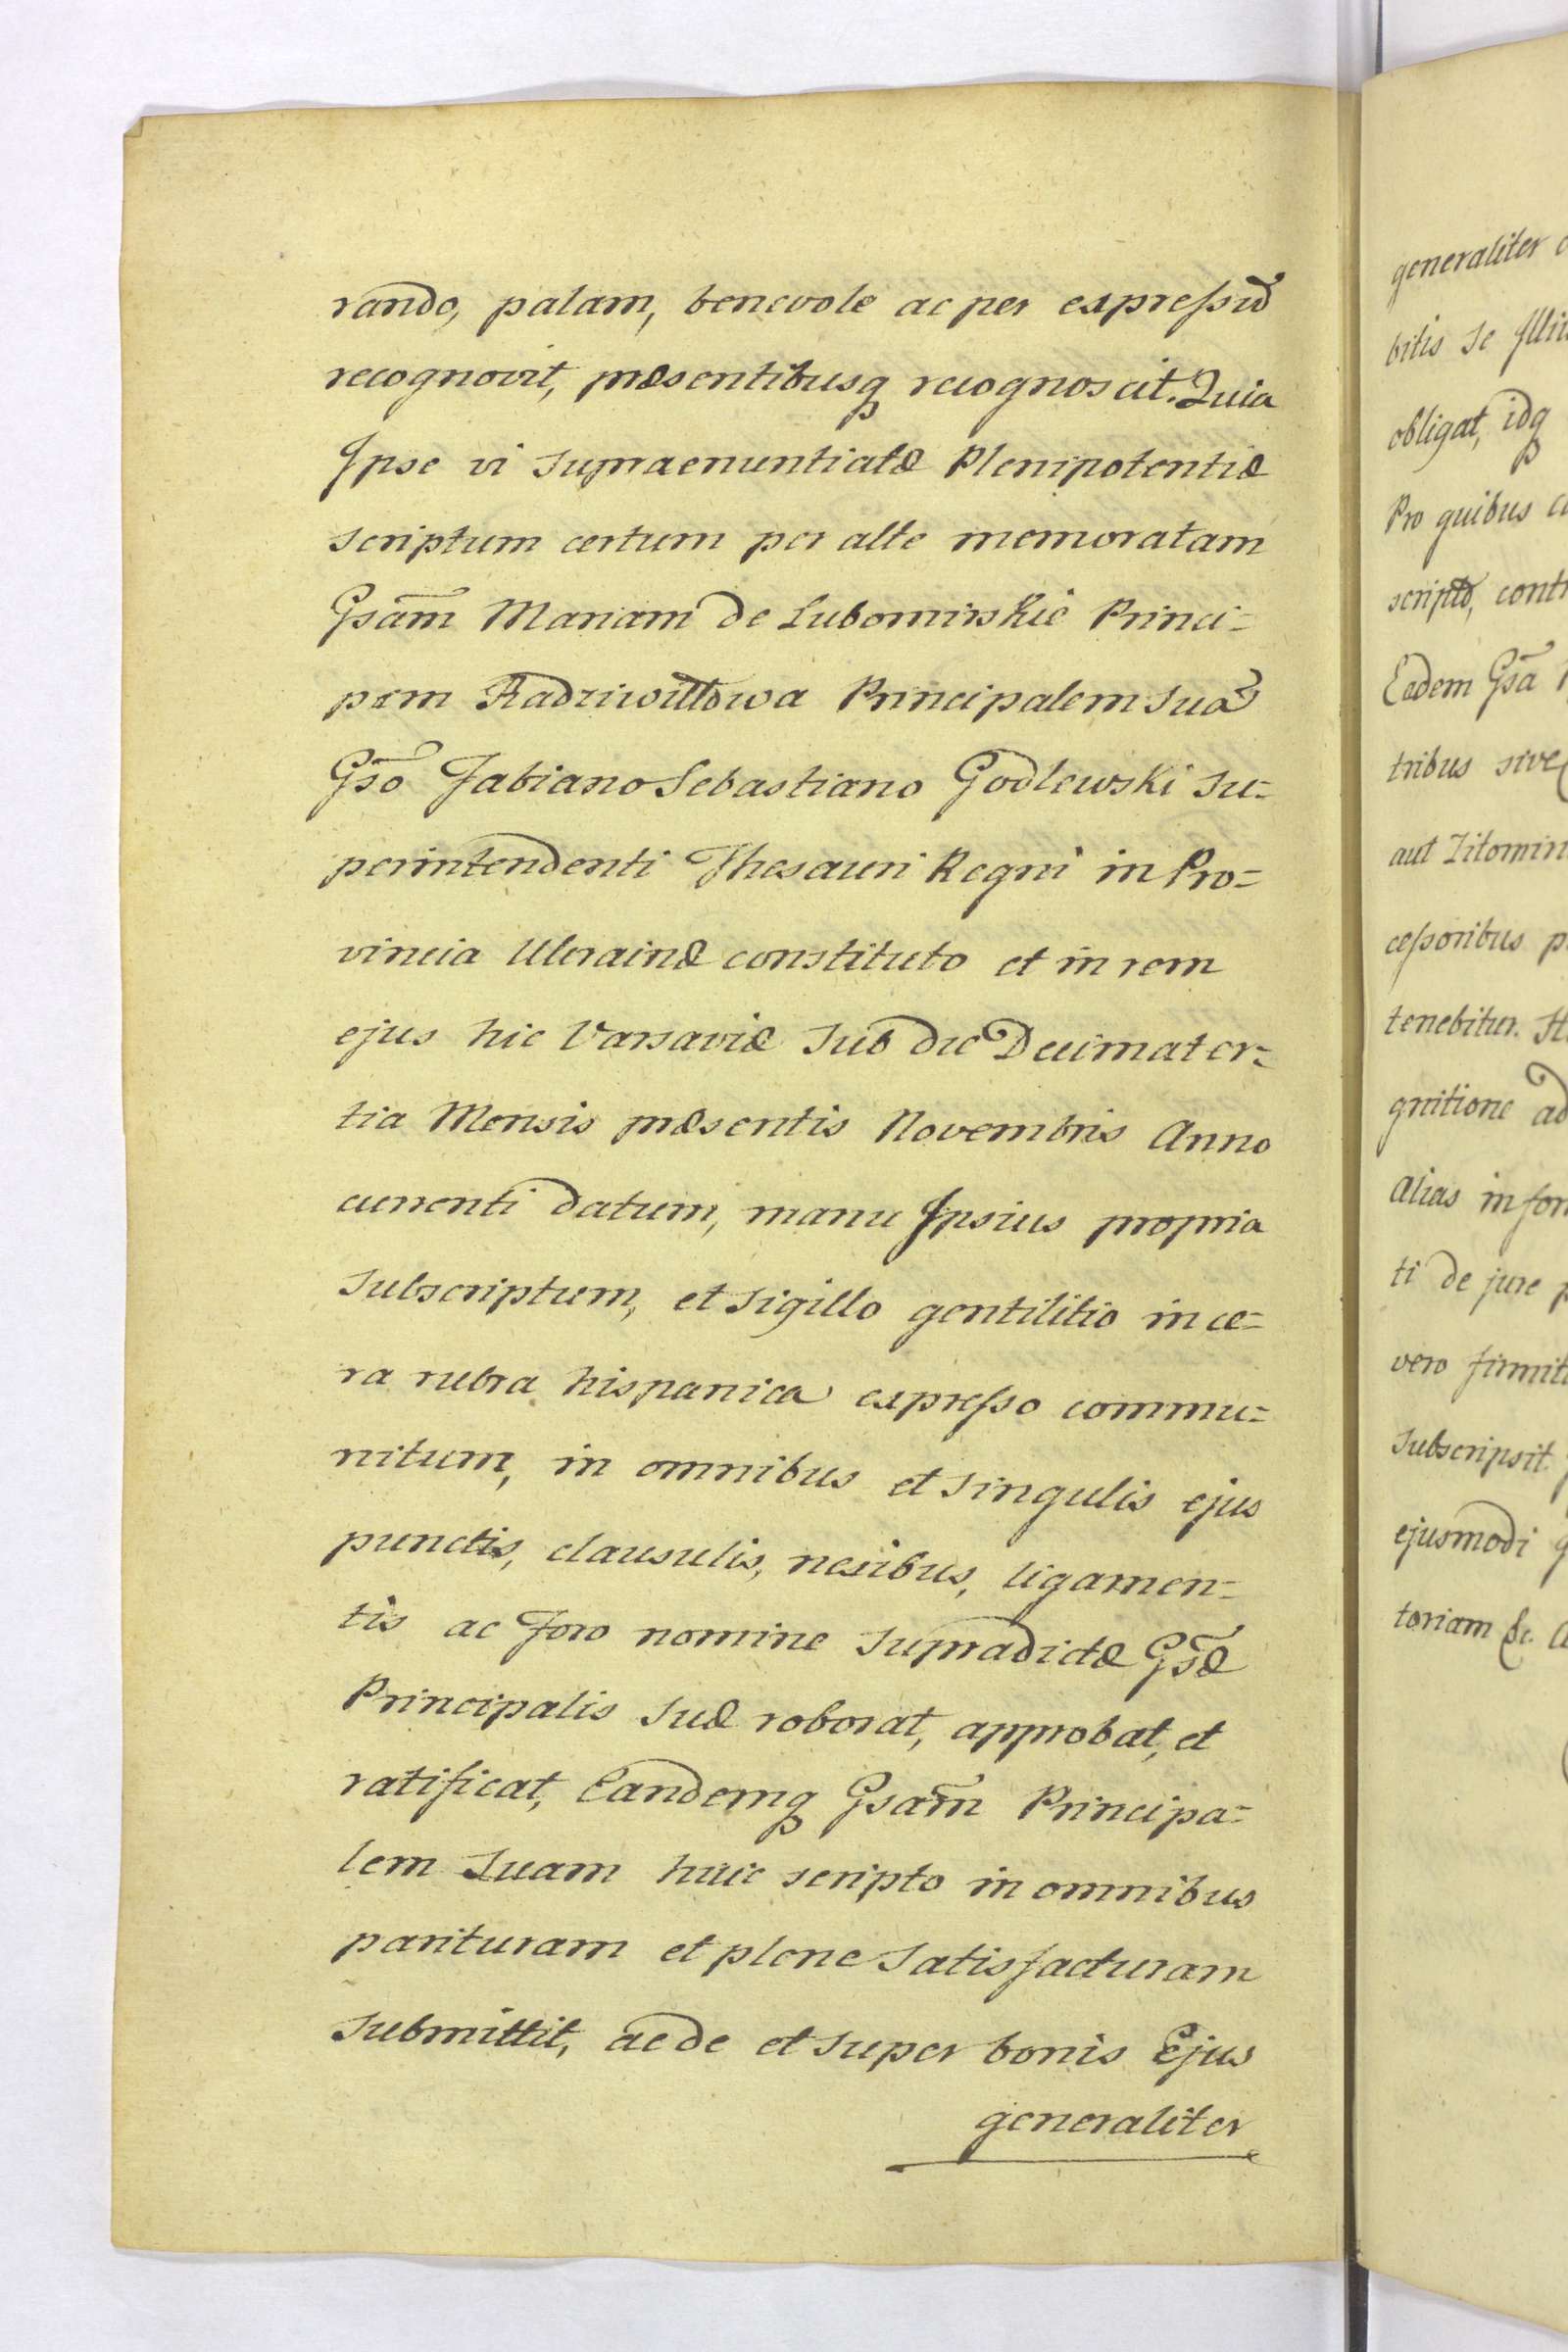 rando, palam, benevole ac per expressū
recognovit, præsentibusq recognoscit. Quia
Ipse vi supraenuntiatæ Plenipotentiæ
scriptum certum per alte memoratam
Gsām Mariam de Lubomirskie Princi=
pem Radziwiłłowa Principalem suā
Gso Fabiano Sebastiano Godlewski su=
perintendenti Thesauri Regni in Pro=
vincia Ukrainæ constituto et in rem
ejus hic Varsaviæ sub die Decimater=
tia Mensis præsentis Novembris Anno
currenti datum, manu Ipsius propria
subscriptum, et sigillo gentilitio in ce=
ra rubra hispanica expresso commu=
nitum, in omnibus et singulis ejus
punctis, clausulis, nexibus, ligamen=
tis ac foro nomine supradictæ Gsæ
Principalis suæ roborat, approbat, et
ratificat, Eandemq Gsam Principa=
lem suam huic scripto in omnibus
parituram et plene satisfacturam
submittit, ac de et super bonis Ejus
generaliter
generaliter
bilis se
obligat, idq
Pro quibus
scripto,
Eadem Gsa
tribus sive
aut
cessoribus
tenebitur.
gnitione
alias in
ti de jure
vero
subscripsit.
ejusmodi
toriam &c.